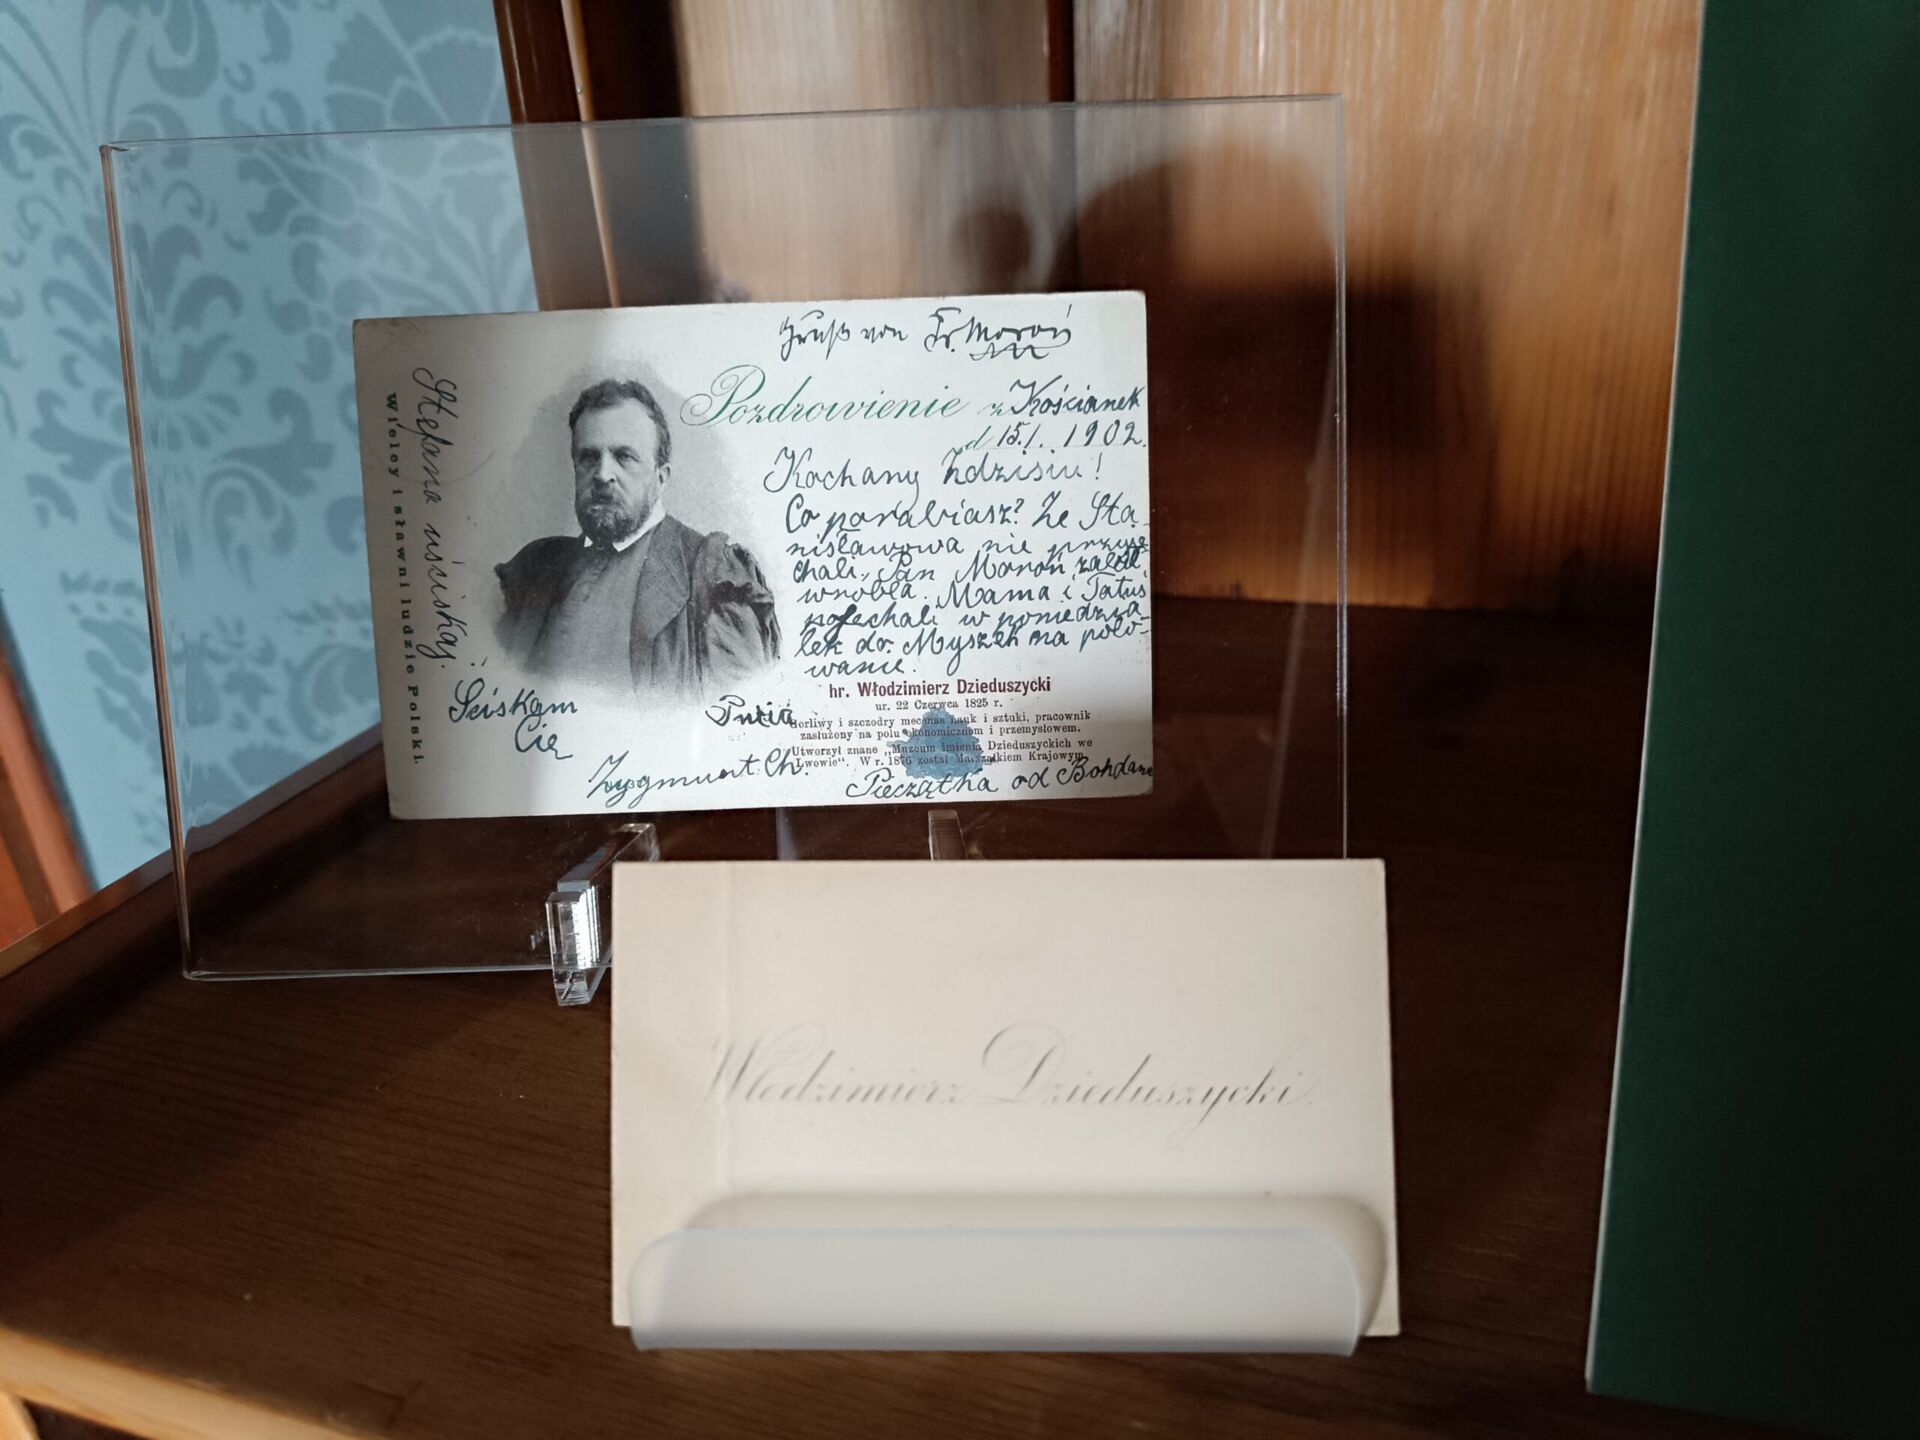 Gruß von Fr. Moroń
Pozdrowienie z Kościanek
d 15.1. 1902.
Kochany Zdzisiu!
Co porabiasz? Ze Sta-
nisławowa nie przyje
chali, Pan Moroń zabił
wróbla. Mama i Tatuś
pojechali w poniedzia
łek do Myszek na polo-
wanie.
Stefana uściskaj.
Wielcy i sławni ludzie Polski.
Ściskam
Cię
Zygmunt Ch.
hr. Włodzimierz Dzieduszycki
ur. 22 Czerwca 1825 r.
Gorliwy i szczodry mecenas nauk i sztuki, pracownik
zasłużony na polu ekonomicznem i przemysłowem.
Utworzył znane „Muzeum imienia Dzieduszyckich we
Lwowie". W r. 1876 został Marszałkiem Krajowym.
Pieczątka od Bohdana
Włodzimierz Dzieduszycki.